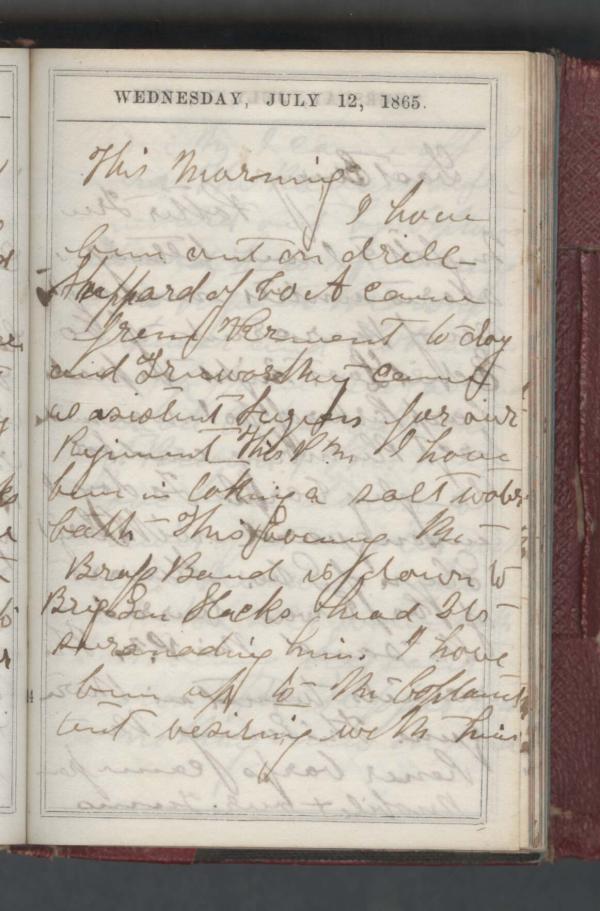 WEDNESDAY, JULY 12, 1865.
This Morning
I have
bin out on drill
Sheppard of Co A came
from Vermont to day
and Trueworthy came
as asistent Surgeon for our
Regiment This P.M. I have
bin in takking a salt water
bath This Evening the
Brass Band is down to
Brig Gen Slacks head Qts
saranading him. I have
bin up to the Captains
tent vesiring with him